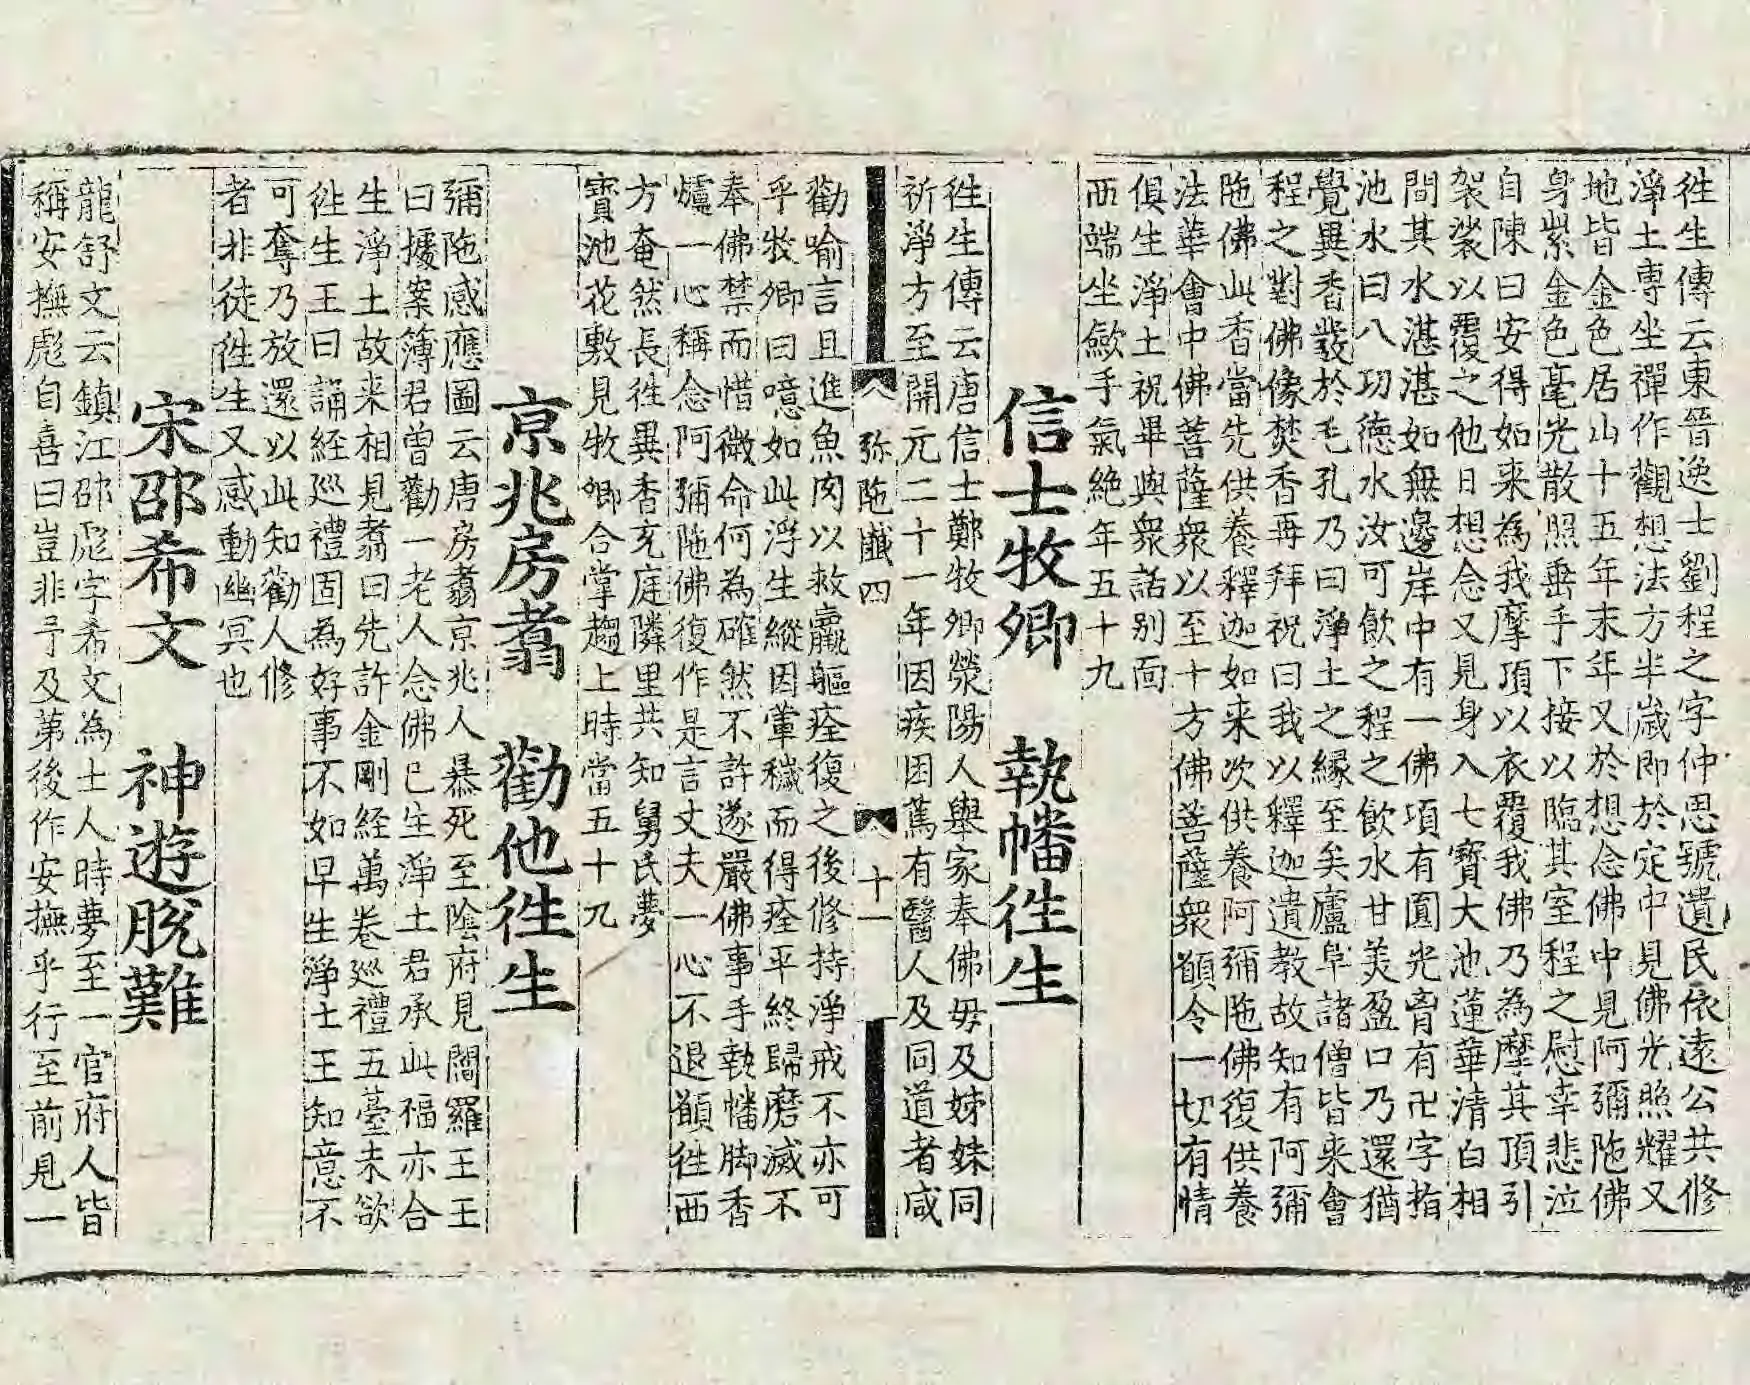 徃生傳云東晉逸士劉程之字仲思號遺民依遠公共修
淨土專坐禪作觀想法方半歲即於定中見佛光照耀又
地皆金色居山十五年末年又於想念佛中見阿彌陁佛
身紫金色毫光散照垂手下接以臨其室程之慰幸悲泣
自陳曰安得如来為我摩頂以衣覆我佛乃為摩其頂引
袈裟以覆之他日想念又見身入七寶大池蓮華清白相
間其水湛湛如無邊岸中有一佛項有圓光胷有卍字指
池水曰八功德水汝可飲之程之飲水甘美盈口乃還猶
覺異香發於毛孔乃曰淨土之緣至矣廬阜諸僧皆来會
程之對佛像焚香再拜祝曰我以釋迦遺教故知有阿彌
陁佛此香當先供養釋迦如来次供養阿彌陁佛復供養
法華會中佛菩薩衆以至十方佛菩薩衆願令一切有情
俱生淨土祝畢與衆話别面
西端坐歛手氣絶年五十九
信士牧卿　執幡徃生
徃生傳云唐信士鄭牧卿滎陽人舉家奉佛毋及姊妹同
祈淨方至開元二十一年因疾困篤有醫人及同道者咸
弥陁懺四　十一
勸喻言且進魚肉以救羸軀痊復之後修持淨戒不亦可
乎牧卿曰噫如此浮生縱因葷穢而得痊平終歸磨滅不
奉佛禁而惜微命何為確然不許遂嚴佛事手執幡脚香
爐一心稱念阿彌陁佛復作是言丈夫一心不退願徃西
方奄然長徃異香充庭隣里共知舅氏夢
寶池花敷見牧卿合掌趨上時當五十九
京兆房翥　勸他徃生
彌陁感應圖云唐房翥京兆人暴死至陰府見閻羅王王
曰據案簿君曾勸一老人念佛已生淨土君承此福亦合
生淨土故来相見翥曰先許金剛経萬卷巡禮五臺未欲
徃生王曰誦経巡禮固為好事不如早生淨土王知意不
可奪乃放還以此知勸人修
者非徒徃生又感動幽冥也
宋邵希文　神遊脫難
龍舒文云鎮江邵彪字希文為士人時夢至一官府人皆
稱安撫彪自喜曰豈非予及第後作安撫乎行至前見一